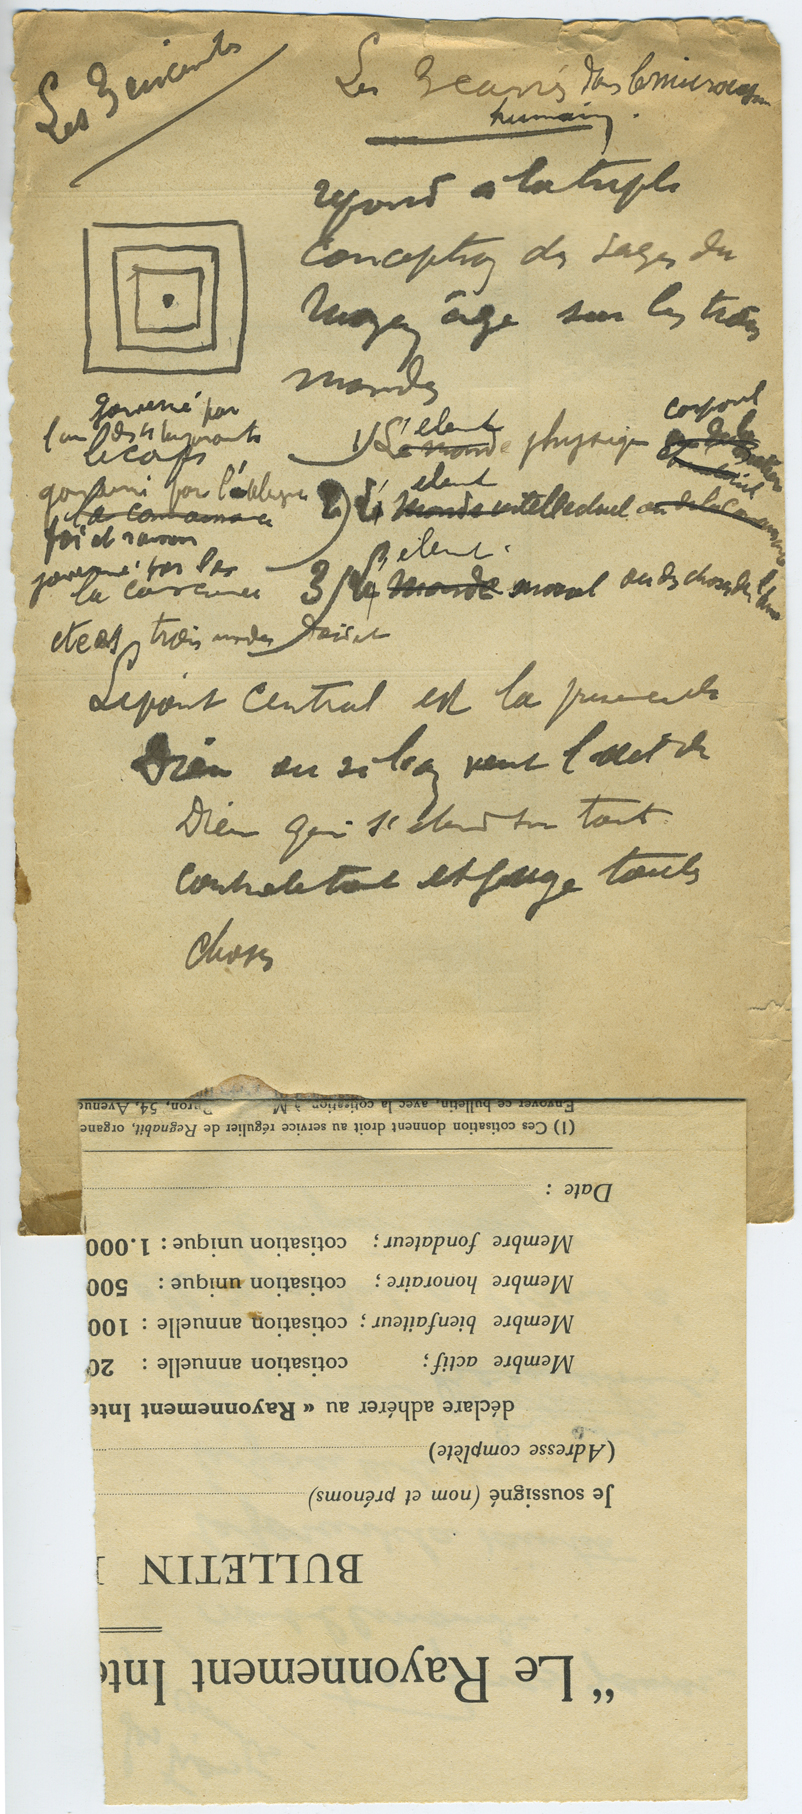 Les 3 enceintes
Les 3 carrés dans le microcosme
humain.
répond à la triple
conception des sages du
Moyen âge sur les trois
mondes
gouverné par
le corps
1) L'élément
Le monde physique
corporel
gouverné par l'intelligence
la connaissance
foi et raison
2) L'élément
Monde intellectuel ou de la connaissance
gouverné par les
la conscience
3) L'élément
Monde moral ou des choses de l'âme
et ces trois mondes
Le point central est la présence de
Dieu ou si l'on veut l'œil de
Dieu qui s'étend sur tout
contrôle tout et juge toutes
choses
Envoyer ce bulletin, avec la cotisation à M. 54, Avenue
(1) Ces cotisation donnent droit au service régulier de Regnabit, organe
Date :
Membre fondateur; cotisation unique : 1.000
Membre honoraire; cotisation unique : 500
Membre bienfaiteur; cotisation annuelle : 100
Membre actif; cotisation annuelle : 20
déclare adhérer au « Rayonnement Inte
(Adresse complète)
Je soussigné (nom et prénoms)
BULLETIN
“ Le Rayonnement Inte